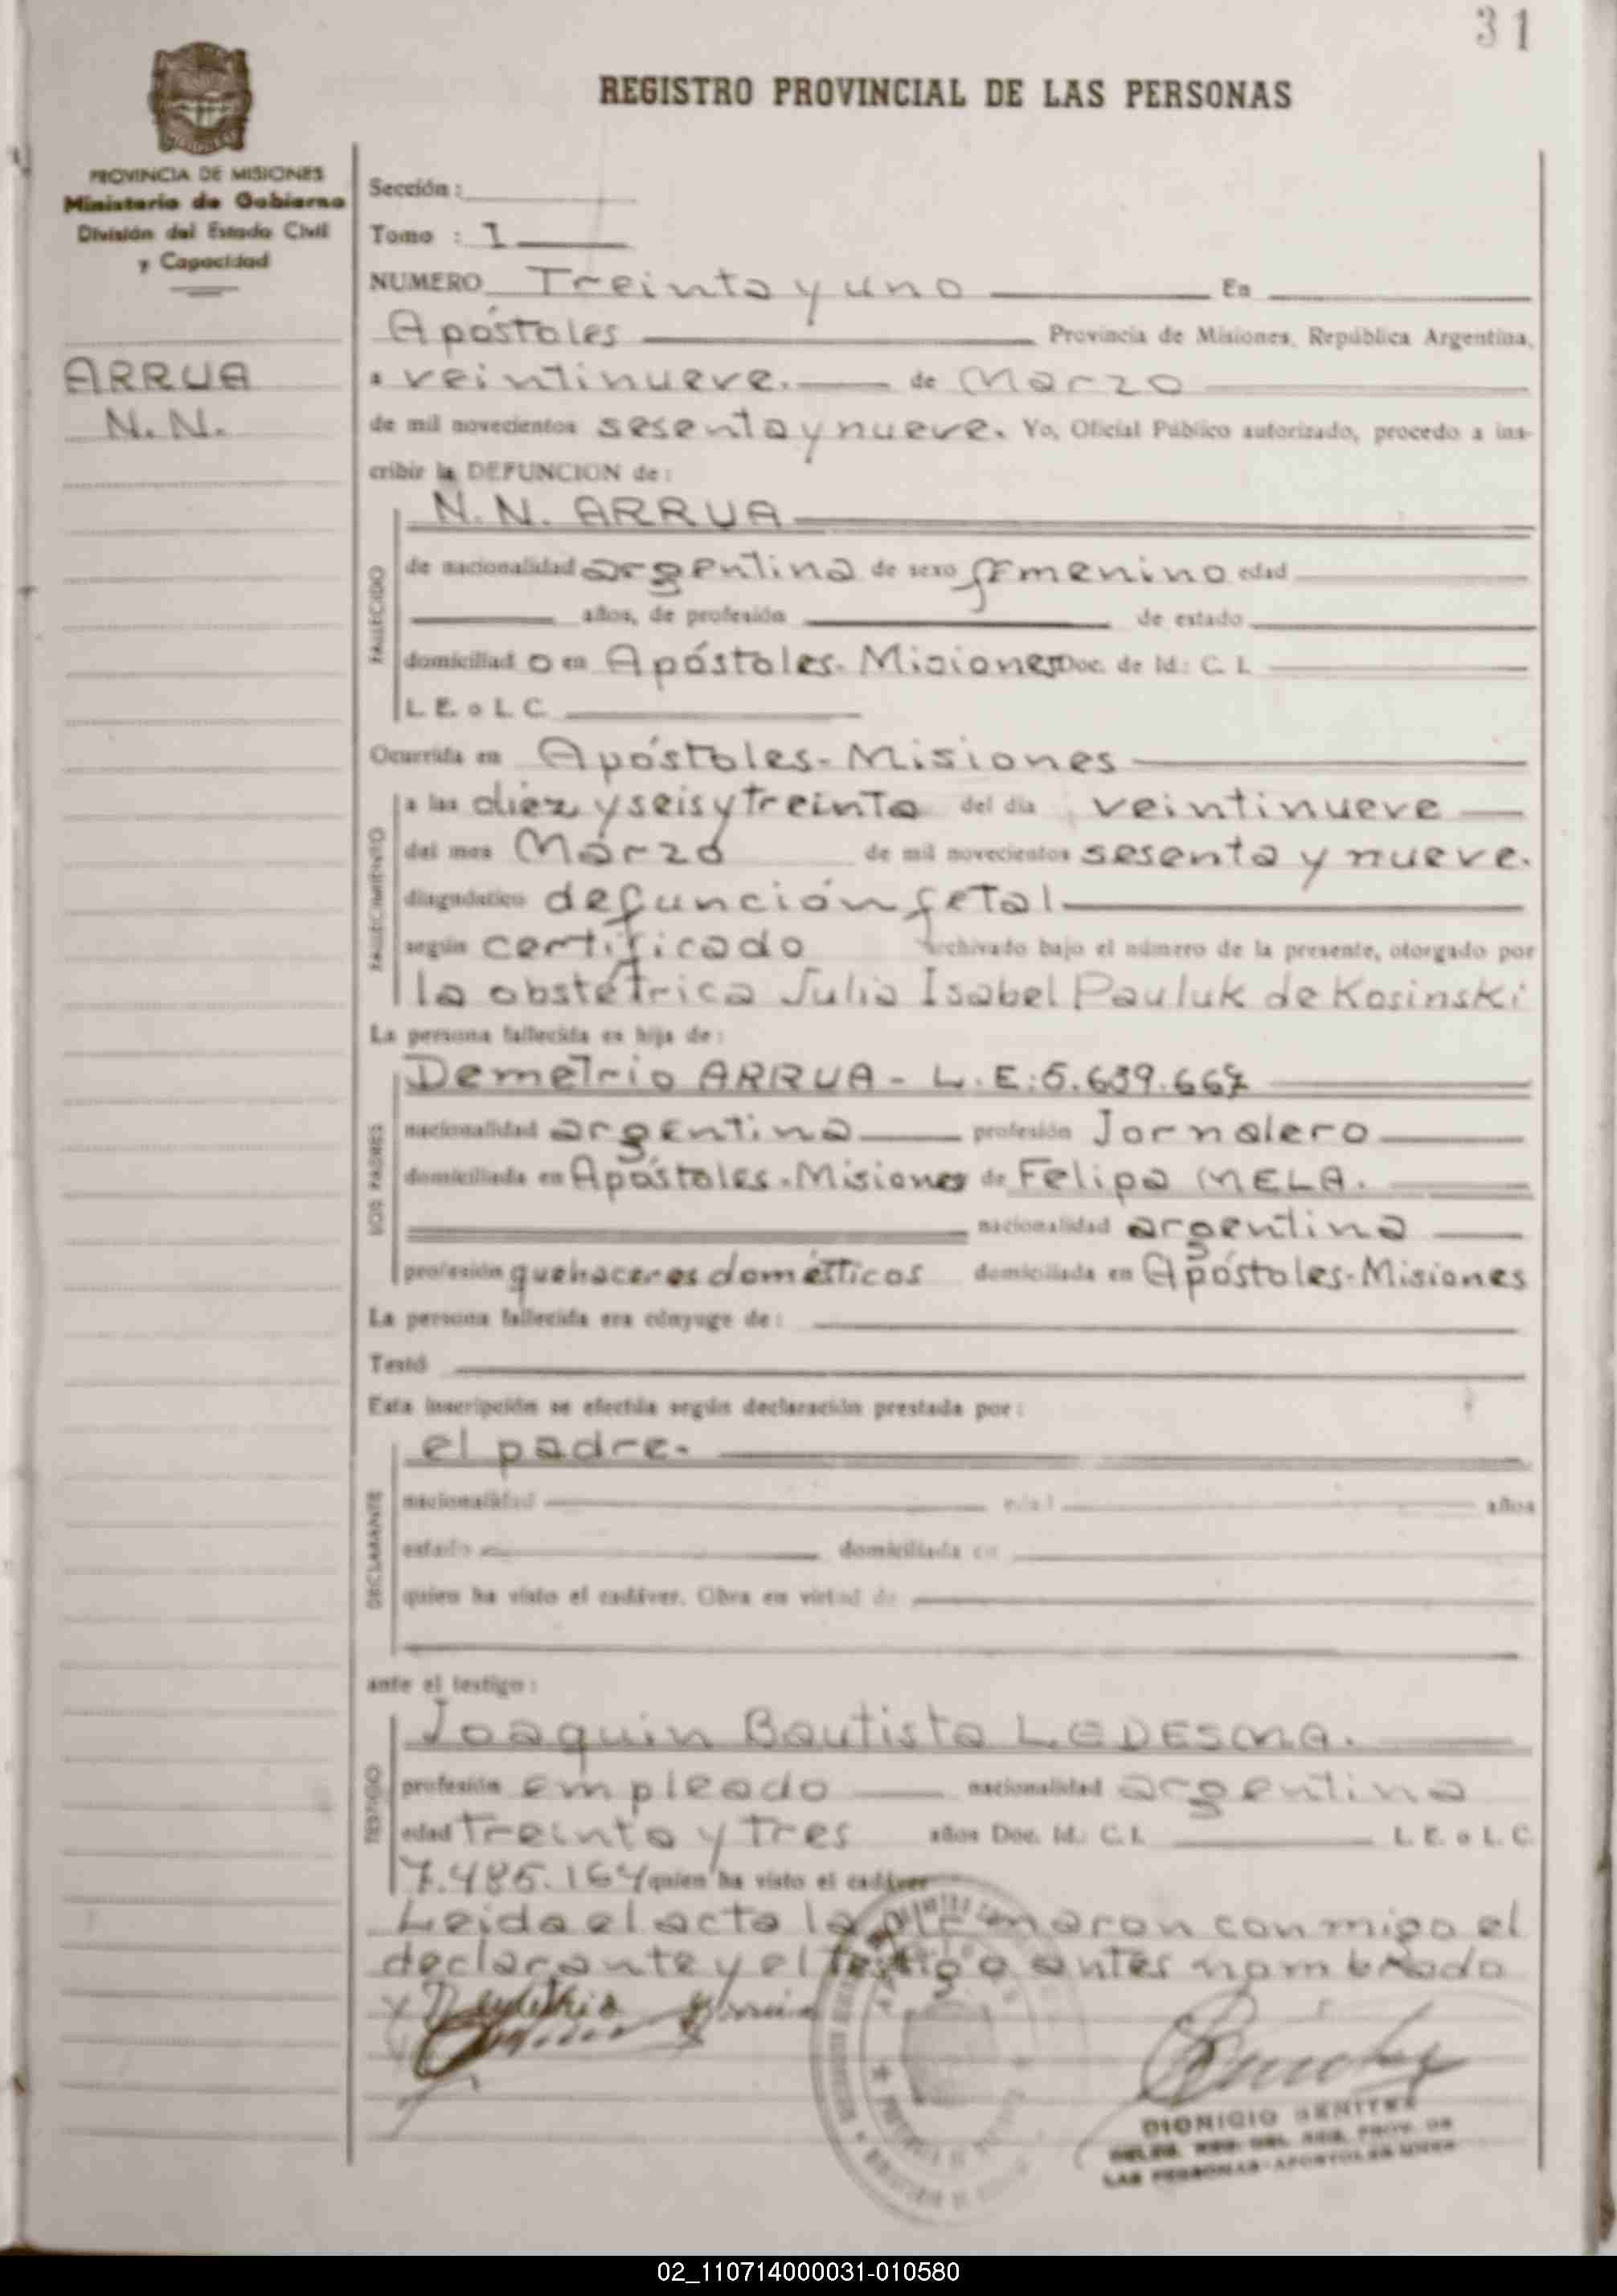 31
REGISTRO PROVINCIAL DE LAS PERSONAS
PROVINCIA DE MISIONES
Ministerio de Gobierno
División del Estado Civil
y Capacidad
ARRUA
N.N.
Sección :
Tomo : I
NUMERO Treinta y uno En
Apóstoles Provincia de Misiones, República Argentina,
a veintinueve. de Marzo
de mil novecientos sesenta y nueve. Yo, Oficial Público autorizado, procedo a ins-
cribir la DEFUNCION de :
N.N. ARRUA
FALLECIDO
de nacionalidad argentina de sexo femenino edad
años, de profesión de estado
domiciliad o en Apóstoles-Misiones Doc. de Id.: C. I.
L E o L C
Ocurrida en Apóstoles-Misiones
FALLECIMIENTO
a las diez y seis y treinta del día veintinueve
del mes Marzo de mil novecientos sesenta y nueve.
diagnóstico defunción fetal
según certificado archivado bajo el número de la presente, otorgado por
la obstétrica Julia Isabel Pauluk de Kosinski
La persona fallecida es hija de :
LOS PADRES
Demetrio ARRUA - L.E: 5.639.667
nacionalidad argentina profesión Jornalero
domiciliada en Apóstoles-Misiones de Felipa MELA.
nacionalidad argentina
profesión quehaceres domésticos domiciliada en Apóstoles-Misiones
La persona fallecida era cónyuge de :
Testó
Esta inscripción se efectúa según declaración prestada por :
DECLARANTE
el padre.
nacionalidad edad años
estado domiciliada en
quien ha visto el cadáver. Obra en virtud de
ante el testigo :
TESTIGO
Joaquin Bautista LEDESMA.
profesión empleado nacionalidad argentina
edad treinta y tres años Doc. Id.: C. I. L. E. o L. C.
7.485.164 quien ha visto el cadáver
Leida el acta la firmaron conmigo el
declarante y el testigo antes nombrado
DIONICIO BENITEZ
DELEG. REG. DEL REG. PROV. DE
LAS PERSONAS-APOSTOLES
02_110714000031-010580